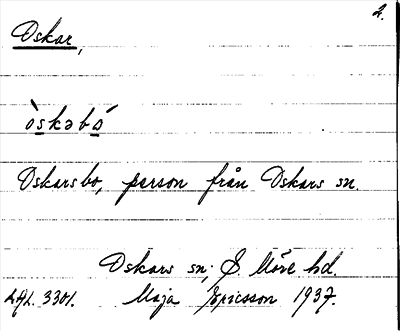 2.
Oskar,
òskəbó
Oskarsbo, person från Oskars sn.
Oskars sn; S. Möre hd.
LAL. 3301. Maja Ericsson 1937.